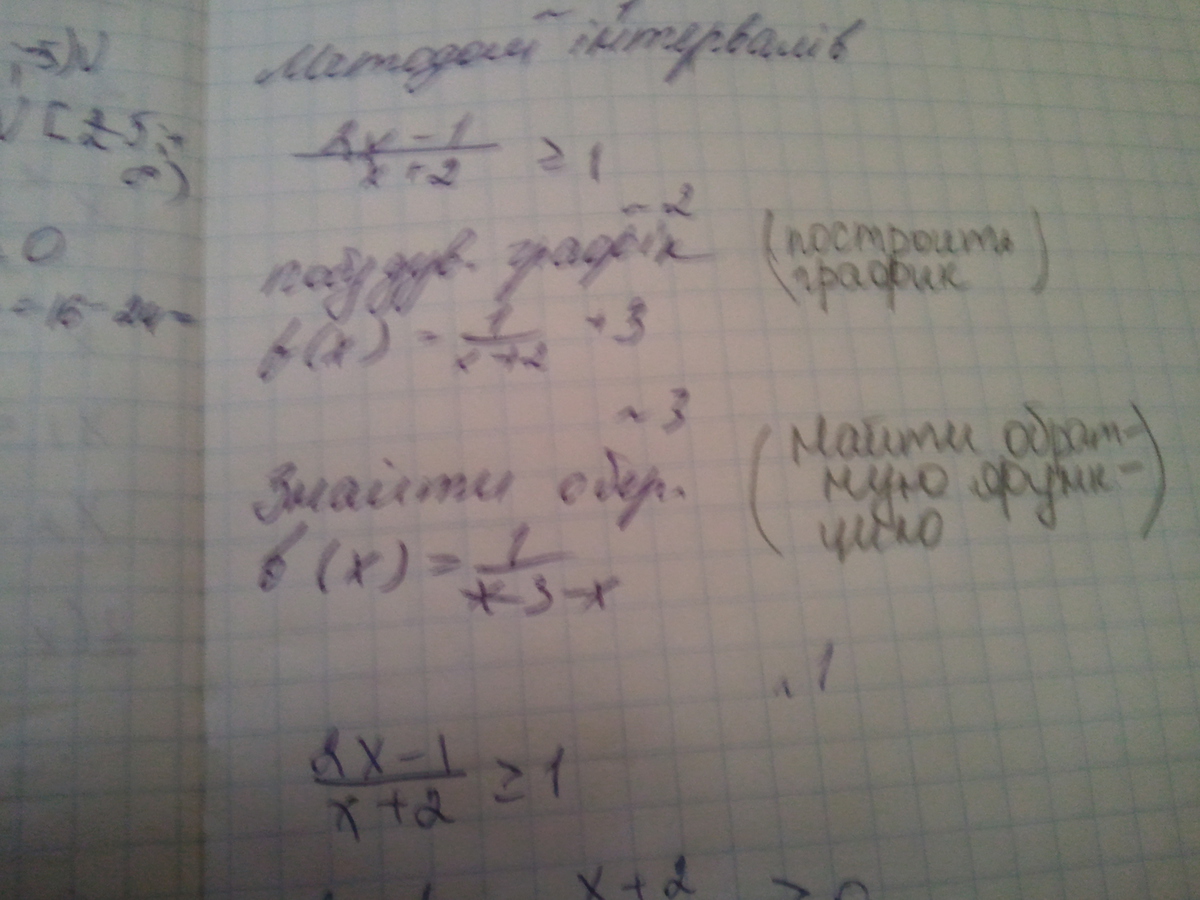 , -5) ∪
∪ [2 5; +
∞)
0
= 16 - 24 =
~ 1
Методом інтервалів
2x - 1 / x + 2 ≥ 1
~ 2
побудув. графік
(построить график)
f(x) = 1 / x + 2 + 3
~ 3
Знайти обер.
(Найти обрат-
ную функ-
цию)
f(x) = 1 / 3 - x
~ 1
2x - 1 / x + 2 ≥ 1
x + 2 ≥ 0